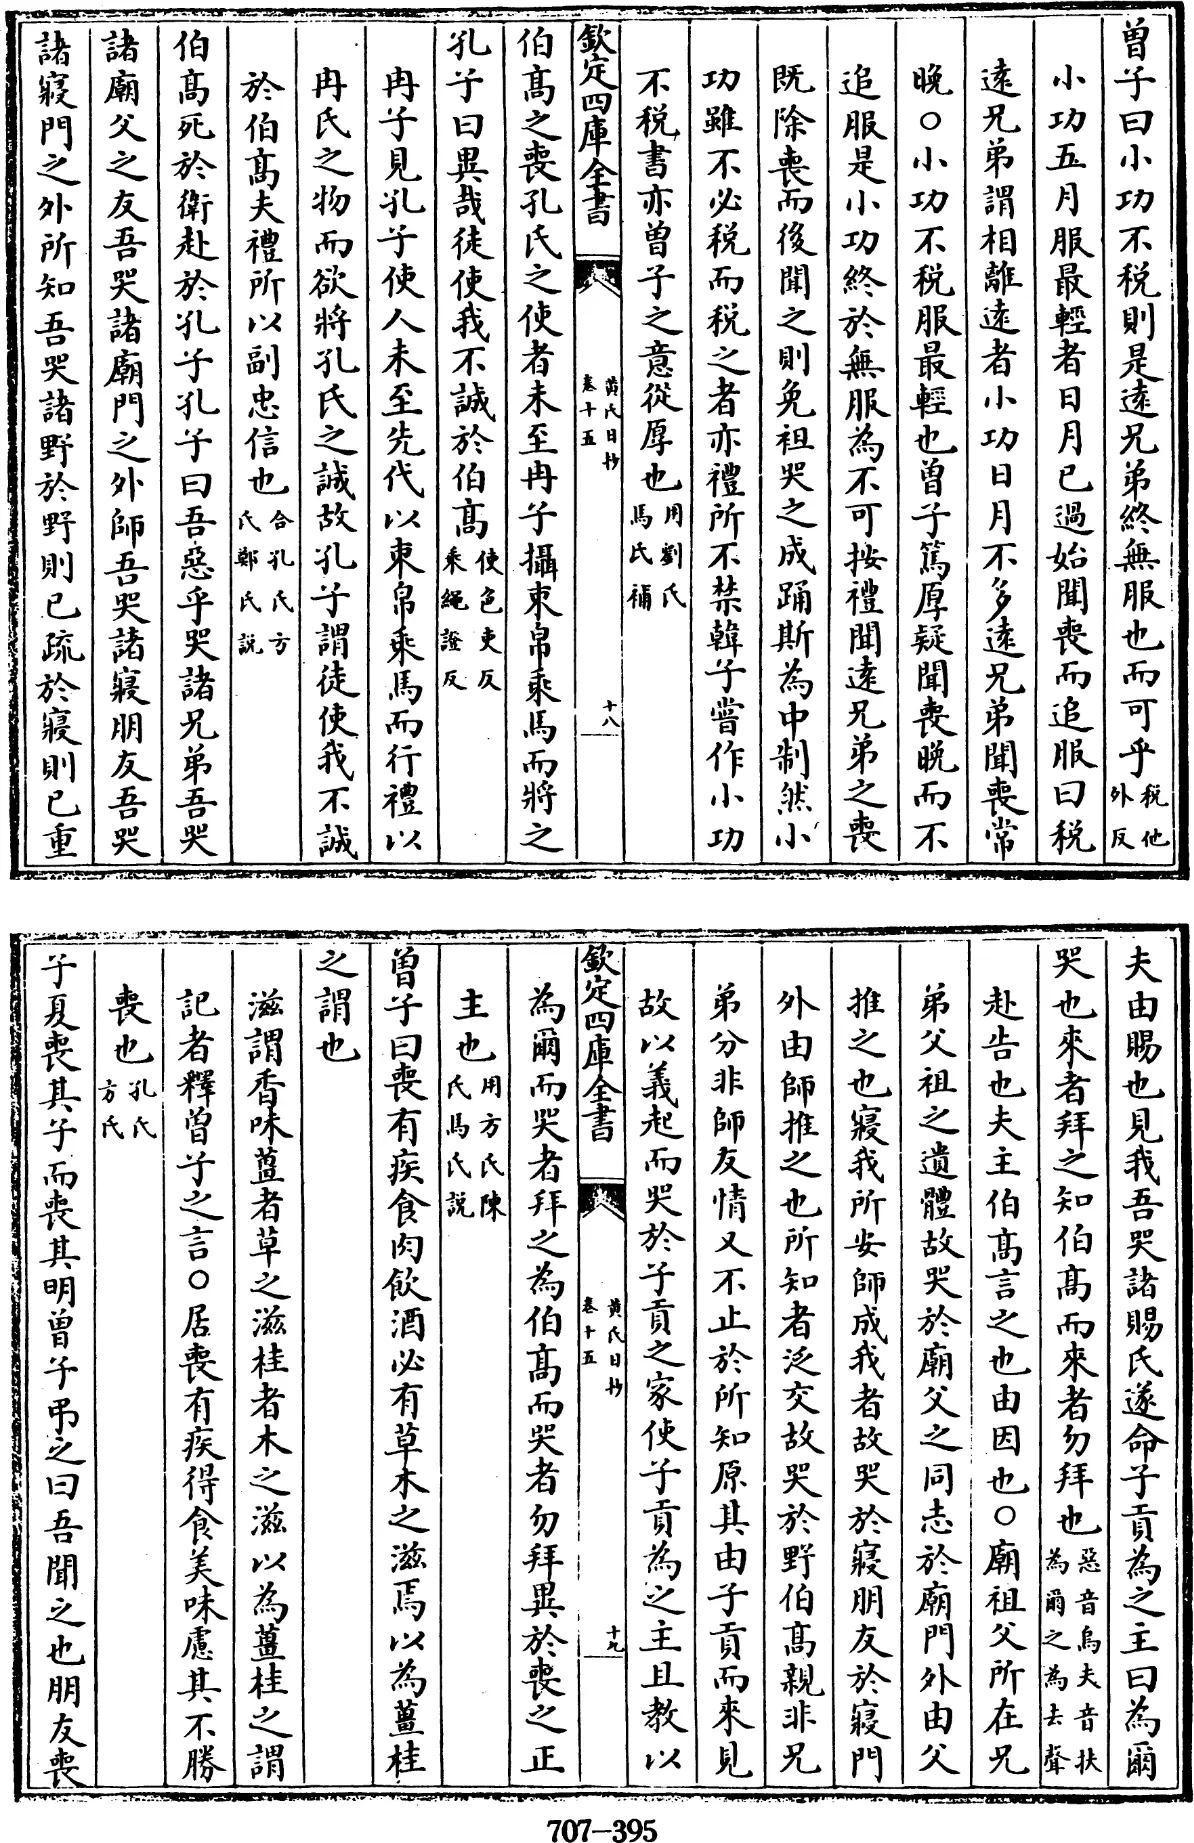 曾子曰小功不税則是逺兄弟終無服也而可乎税他外反
小功五月服最輕者日月已過始聞喪而追服曰税
逺兄弟謂相離逺者小功日月不多逺兄弟聞喪常
晚○小功不税服最輕也曾子篤厚疑聞喪晚而不
追服是小功終於無服為不可按禮聞逺兄弟之喪
既除喪而後聞之則免袒哭之成踊斯為中制然小
功雖不必税而税之者亦禮所不禁韓子嘗作小功
不税書亦曾子之意從厚也用劉氏馬氏補
欽定四庫全書
黄氏日抄
卷十五
十八
伯髙之喪孔氏之使者未至冉子攝束帛乘馬而將之
孔子曰異哉徒使我不誠於伯髙使色吏反乘繩證反
冉子見孔子使人未至先代以束帛乘馬而行禮以
冉氏之物而欲將孔氏之誠故孔子謂徒使我不誠
於伯髙夫禮所以副忠信也合孔氏方氏鄭氏説
伯髙死於衛赴於孔子孔子曰吾惡乎哭諸兄弟吾哭
諸廟父之友吾哭諸廟門之外師吾哭諸寢朋友吾哭
諸寢門之外所知吾哭諸野於野則已疏於寢則已重
夫由賜也見我吾哭諸賜氏遂命子貢為之主曰為爾
哭也來者拜之知伯髙而來者勿拜也惡音烏夫音扶為爾之為去聲
赴告也夫主伯髙言之也由因也○廟祖父所在兄
弟父祖之遺體故哭於廟父之同志於廟門外由父
推之也寢我所安師成我者故哭於寢朋友於寢門
外由師推之也所知者泛交故哭於野伯髙親非兄
弟分非師友情又不止於所知原其由子貢而來見
故以義起而哭於子貢之家使子貢為之主且教以
欽定四庫全書
黄氏日抄
卷十五
十九
為爾而哭者拜之為伯髙而哭者勿拜異於喪之正
主也用方氏陳氏馬氏説
曾子曰喪有疾食肉飲酒必有草木之滋焉以為薑桂
之謂也
滋謂香味薑者草之滋桂者木之滋以為薑桂之謂
記者釋曾子之言○居喪有疾得食美味慮其不勝
喪也孔氏方氏
子夏喪其子而喪其明曾子弔之曰吾聞之也朋友喪
707-395